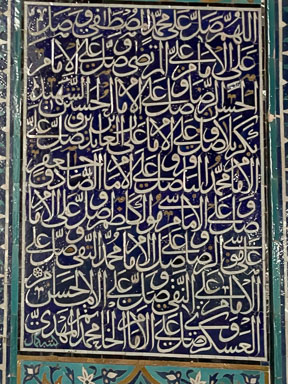 اللهم صل علی محمد المصطفی وصل
علی الامام علی المرتضی وصل علی الامام
الحسن الرضا وصل علی الامام الحسین الشهید
بکربلا وصل علی الامام علی العابد وصل علی
الامام محمد الباقر وصل علی الامام جعفر الصادق
وصل علی الامام موسی الکاظم وصل علی الامام
علی بن موسی وصل علی الامام محمد التقی وصل علی
الامام علی النقی وصل علی الامام الحسن
العسکری وصل علی الامام محمد المهدی